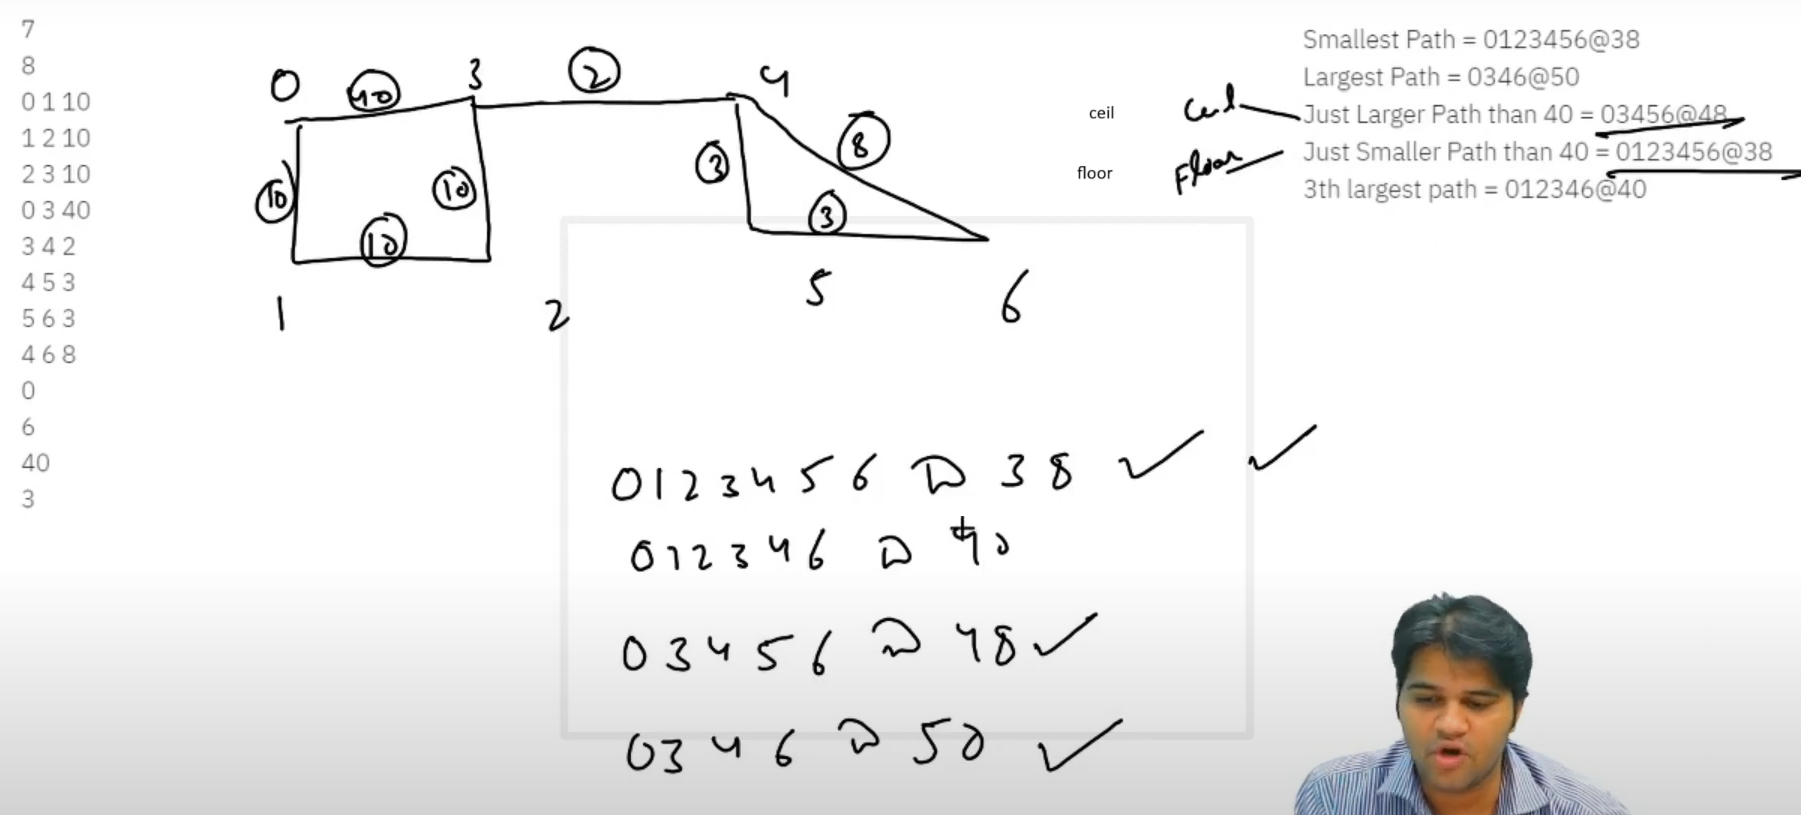 7
8
0 1 10
1 2 10
2 3 10
0 3 40
3 4 2
4 5 3
5 6 3
4 6 8
0
6
40
3
0 40 3 2 4
10 10 10 3 3 8
1 2 5 6
Smallest Path = 0123456@38
Largest Path = 0346@50
ceil Ceil Just Larger Path than 40 = 03456@48
floor Floor Just Smaller Path than 40 = 0123456@38
3th largest path = 012346@40
0123456 @ 38
012346 @ 40
03456 @ 48
0346 @ 50